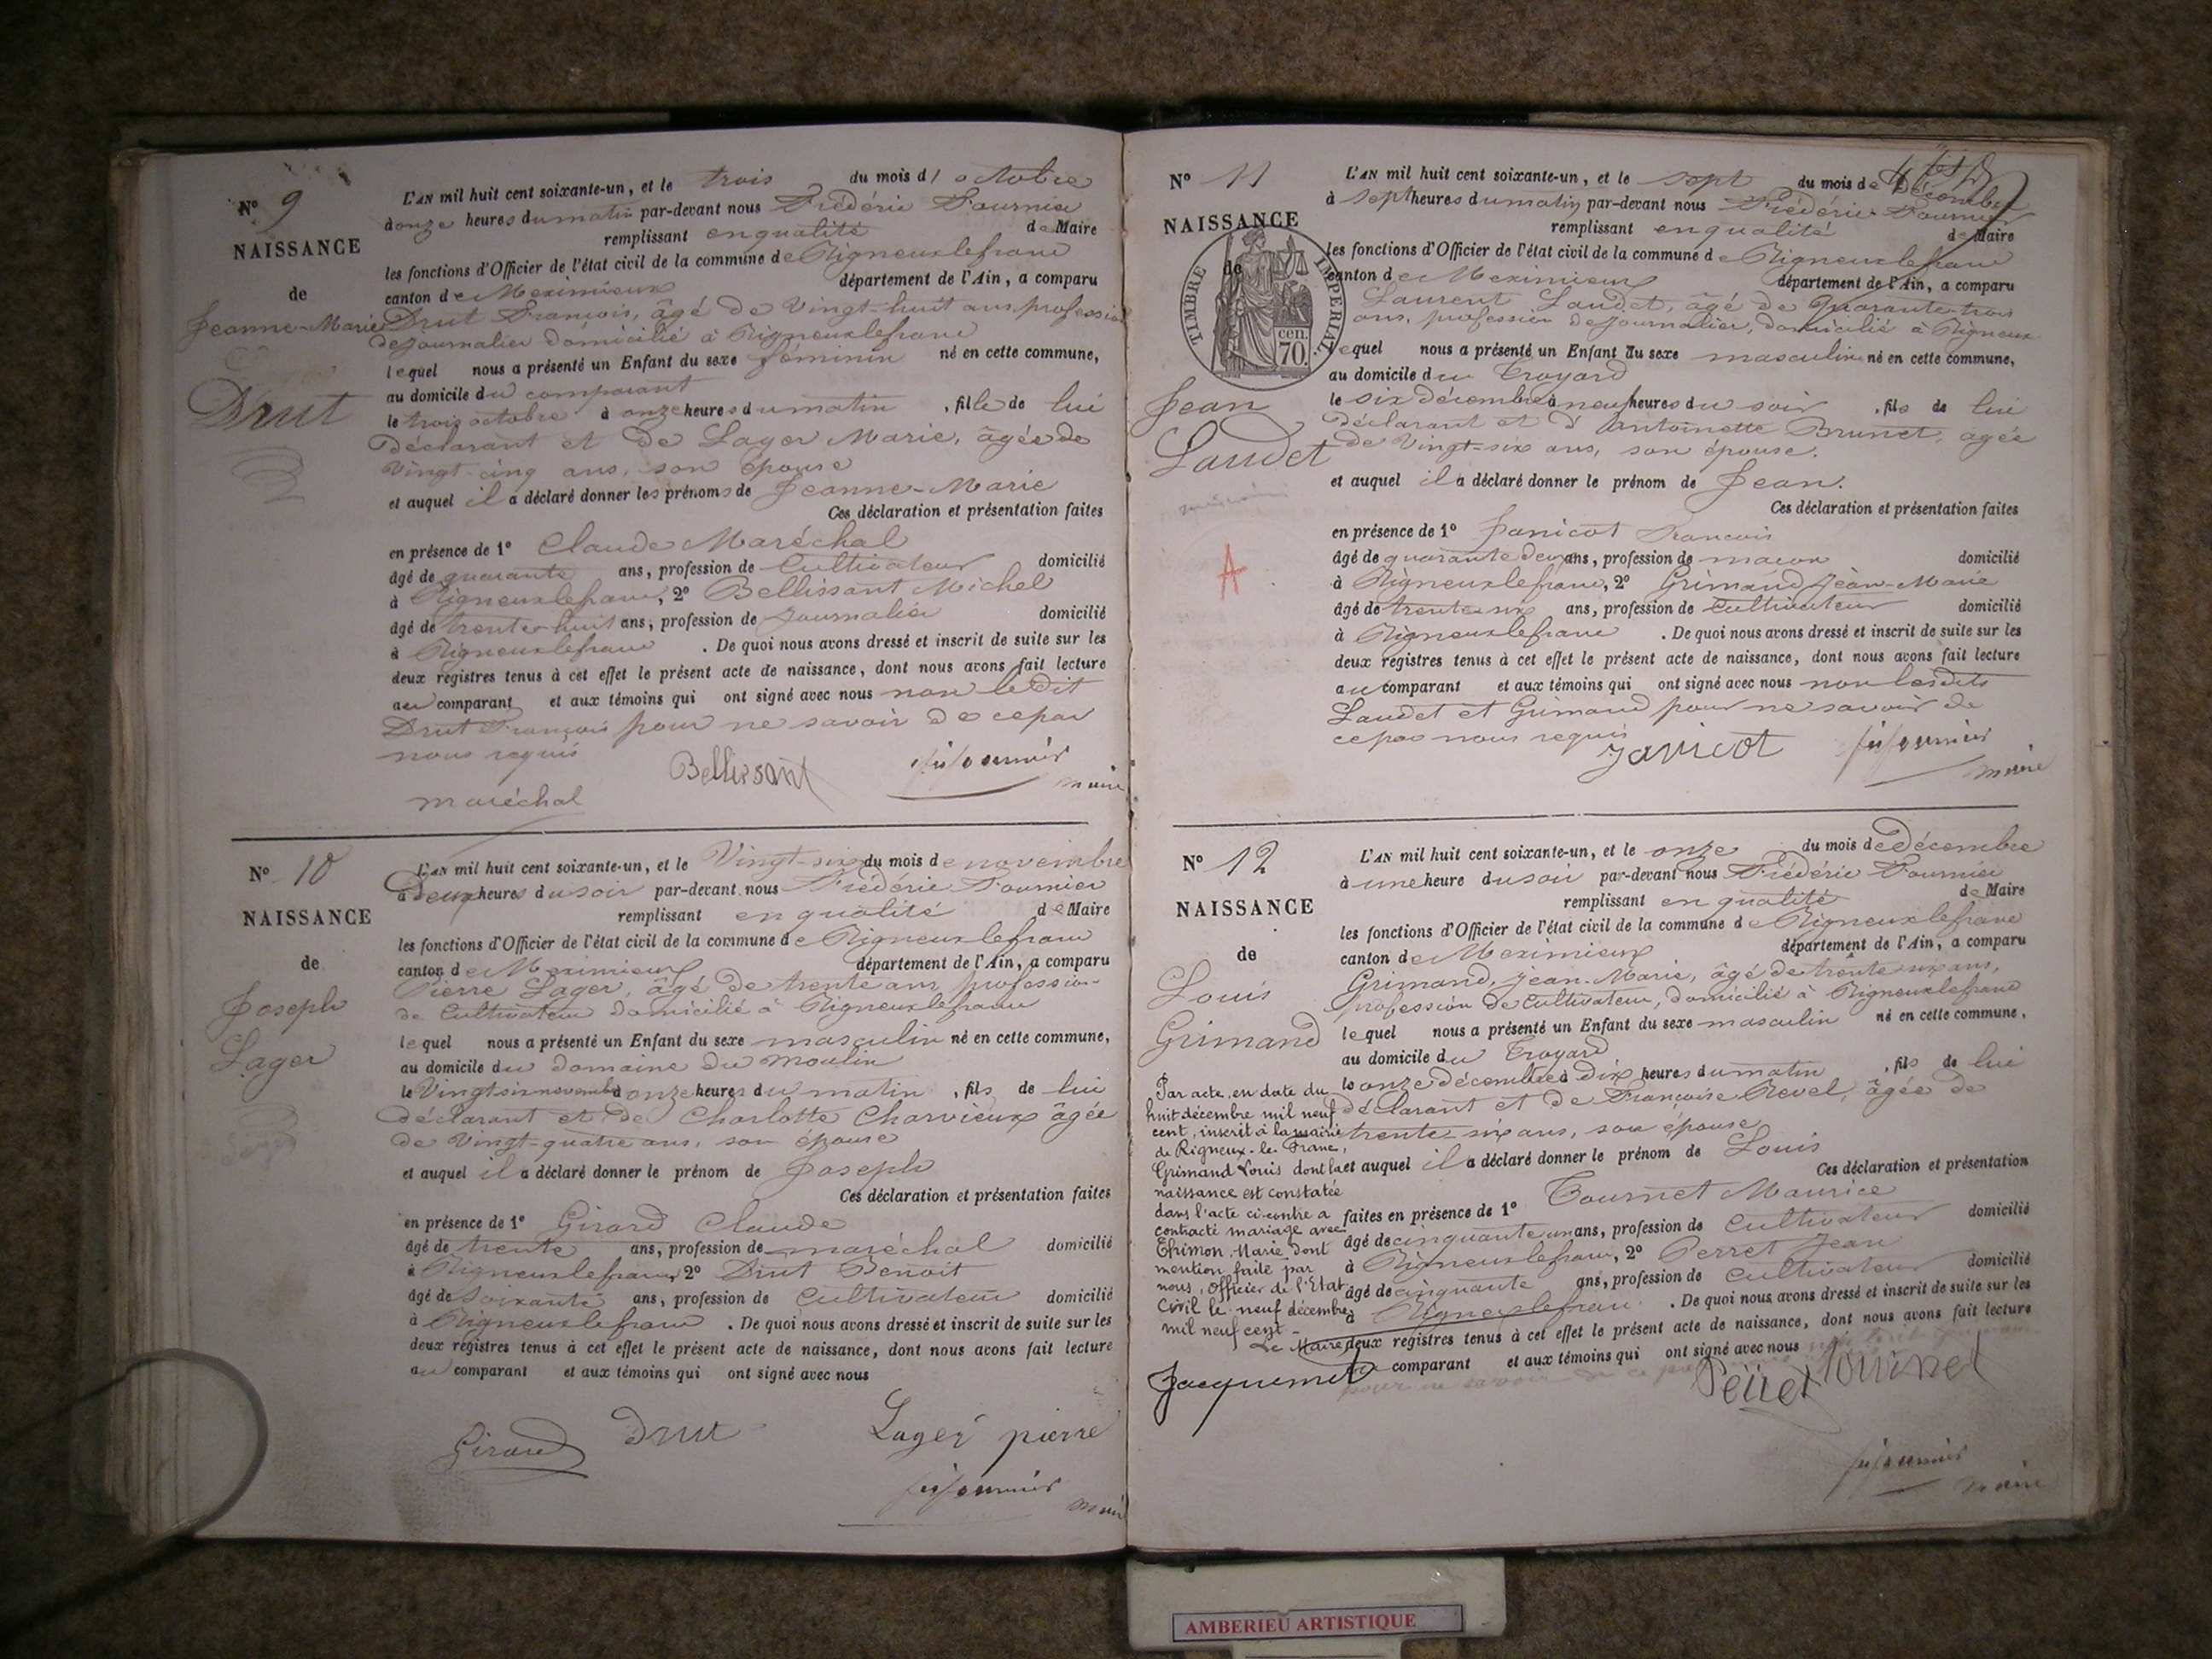 N° 9
NAISSANCE
de
Jeanne-Marie
Drut
L'AN mil huit cent soixante-un, et le trois du mois d' octobre
à onze heures du matin par-devant nous Frédéric Fournier
remplissant en qualité de Maire
les fonctions d'Officier de l'état civil de la commune de Rigneux le franc
canton de Meximieux département de l'Ain, a comparu
Drut François, âgé de Vingt-huit ans, profession
de journalier domicilié à Rigneux le franc
lequel nous a présenté un Enfant du sexe féminin né en cette commune,
au domicile du comparant
le trois octobre à onze heures du matin, fille de lui
déclarant et de Lager Marie, âgée de
Vingt-cinq ans, son épouse
et auquel il a déclaré donner les prénoms de Jeanne-Marie
Ces déclaration et présentation faites
en présence de 1° Claude Maréchal
âgé de quarante ans, profession de Cultivateur domicilié
à Rigneux le franc, 2° Bellissant Michel
âgé de trente-huit ans, profession de journalier domicilié
à Rigneux le franc. De quoi nous avons dressé et inscrit de suite sur les
deux registres tenus à cet effet le présent acte de naissance, dont nous avons fait lecture
au comparant et aux témoins qui ont signé avec nous non le dit
Drut François pour ne savoir de ce par
nous requis
Bellissant
maréchal
maire
N° 10
NAISSANCE
de
Joseph
Lager
L'AN mil huit cent soixante-un, et le Vingt-six du mois de novembre
à deux heures du soir par-devant nous Frédéric Fournier
remplissant en qualité de Maire
les fonctions d'Officier de l'état civil de la commune de Rigneux le franc
canton de Meximieux département de l'Ain, a comparu
Pierre Lager, âgé de trente ans, profession
de Cultivateur domicilié à Rigneux le franc
lequel nous a présenté un Enfant du sexe masculin né en cette commune,
au domicile du domaine du Moulin
le Vingt six novembre à onze heures du matin, fils de lui
déclarant et de Charlotte Charvieux âgée
de Vingt-quatre ans, son épouse
et auquel il a déclaré donner le prénom de Joseph
Ces déclaration et présentation faites
en présence de 1° Girard Claude
âgé de trente ans, profession de maréchal domicilié
à Rigneux le franc, 2° Drut Benoit
âgé de soixante ans, profession de Cultivateur domicilié
à Rigneux le franc. De quoi nous avons dressé et inscrit de suite sur les
deux registres tenus à cet effet le présent acte de naissance, dont nous avons fait lecture
au comparant et aux témoins qui ont signé avec nous
Girard Drut Lager pierre
N° 11
NAISSANCE
de
TIMBRE IMPERIAL
70 cen.
Jean
Laudet
A
L'AN mil huit cent soixante-un, et le sept du mois de Décembre
à sept heures du matin par-devant nous Frédéric Fournier
remplissant en qualité de Maire
les fonctions d'Officier de l'état civil de la commune de Rigneux le franc
canton de Meximieux département de l'Ain, a comparu
Laurent Laudet, âgé de Quarante-trois
ans, profession de journalier, domicilié à Rigneux
lequel nous a présenté un Enfant du sexe masculin né en cette commune,
au domicile du Troyard
le six décembre à neuf heures du soir, fils de lui
déclarant et d'Antoinette Brunet, âgée
de Vingt-six ans, son épouse.
et auquel il a déclaré donner le prénom de Jean.
Ces déclaration et présentation faites
en présence de 1° Janicot François
âgé de quarante deux ans, profession de maçon domicilié
à Rigneux le franc, 2° Grimand Jean-Marie
âgé de trente six ans, profession de Cultivateur domicilié
à Rigneux le franc. De quoi nous avons dressé et inscrit de suite sur les
deux registres tenus à cet effet le présent acte de naissance, dont nous avons fait lecture
au comparant et aux témoins qui ont signé avec nous non les dits
Laudet et Grimand pour ne savoir de
ce par nous requis
Janicot
maire
N° 12
NAISSANCE
de
Louis
Grimand
Par acte, en date du
huit décembre mil neuf
cent, inscrit à la mairie
de Rigneux-le-Franc,
Grimand Louis dont la
naissance est constatée
dans l'acte ci-contre a
contracté mariage avec
Marie dont
mention faite par
nous, Officier de l'Etat
Civil le neuf décembre
mil neuf cent.
Le Maire
Jacquemet
L'AN mil huit cent soixante-un, et le onze du mois de décembre
à une heure du soir par-devant nous Frédéric Fournier
remplissant en qualité de Maire
les fonctions d'Officier de l'état civil de la commune de Rigneux le franc
canton de Meximieux département de l'Ain, a comparu
Grimand, Jean-Marie, âgé de trente six ans,
profession de Cultivateur, domicilié à Rigneux le franc
lequel nous a présenté un Enfant du sexe masculin né en cette commune,
au domicile du Troyard
le onze décembre à dix heures du matin, fils de lui
déclarant et de Françoise Revel, âgée de
trente-six ans, son épouse
et auquel il a déclaré donner le prénom de Louis
Ces déclaration et présentation
faites en présence de 1° Tournet Maurice
âgé de cinquante un ans, profession de Cultivateur domicilié
à Rigneux le franc, 2° Perret Jean
âgé de cinquante ans, profession de Cultivateur domicilié
à Rigneux le franc. De quoi nous avons dressé et inscrit de suite sur les
deux registres tenus à cet effet le présent acte de naissance, dont nous avons fait lecture
au comparant et aux témoins qui ont signé avec nous
pour ne savoir de ce
Perret Tournet
maire
AMBERIEU ARTISTIQUE